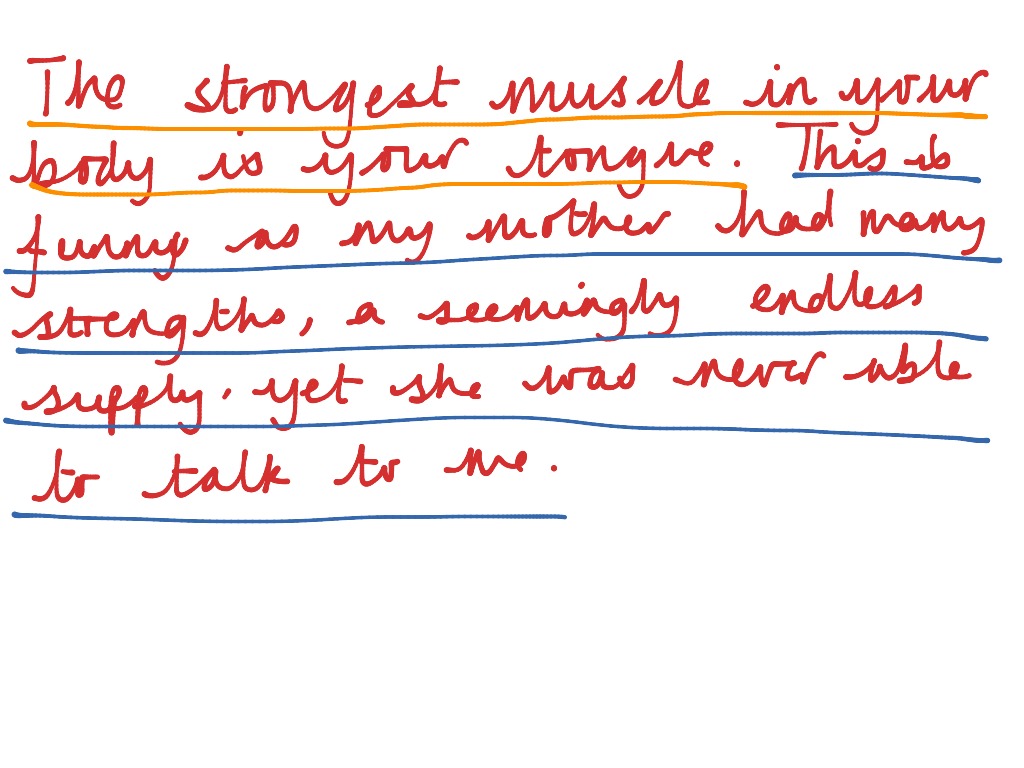 The strongest muscle in your
body is your tongue. This is
funny as my mother had many
strengths, a seemingly endless
supply. yet she was never able
to talk to me.